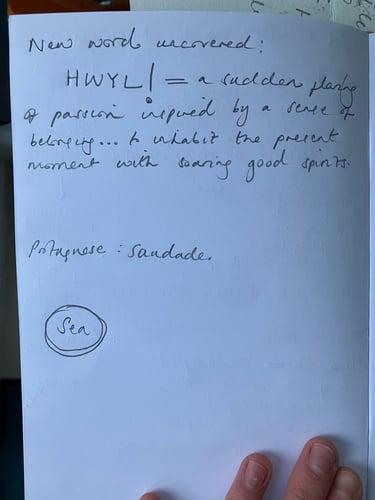 New word uncovered:
HWYL! = a sudden flaring
of passion inspired by a sense of
belonging... to inhabit the present
moment with soaring good spirits.
Portuguese: Saudade.
Sea